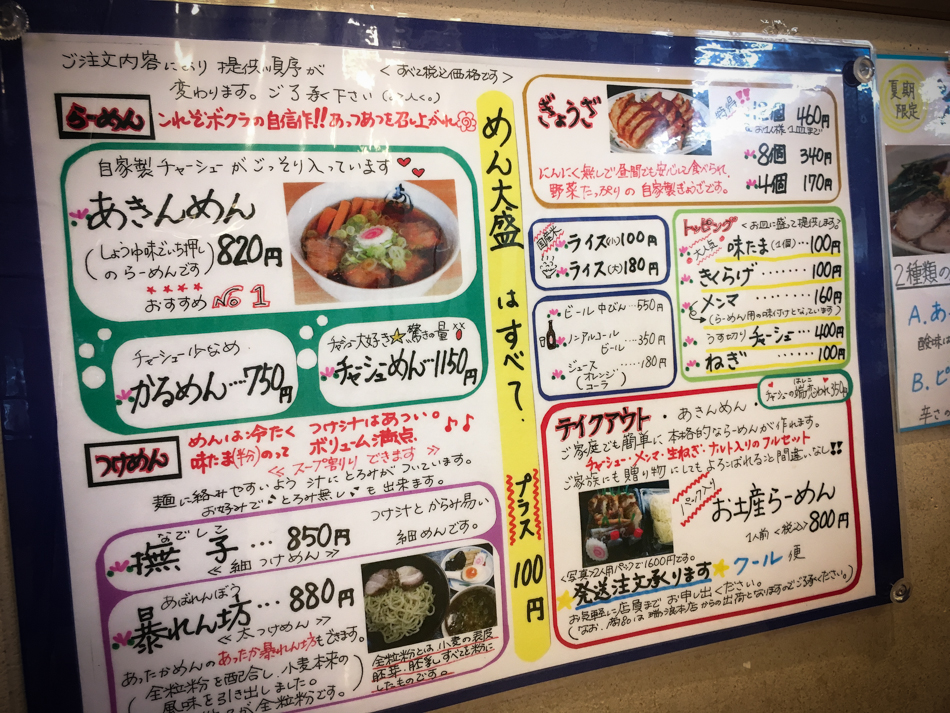 ご注文内容により 提供順序が
変わります。ご了承く下さい
<すべて税込価格です>
らーめん
これぞボクラの自信作!! あっつあつを召し上がれ
自家製チャーシューがごっそり入っています
あきんめん
(しょうゆ味でいち押し
のらーめんです)
820円
おすすめ No 1
チャーシュー少なめ
かるめん…750円
チャーシュー大好き☆驚きの量!!
チャーシューめん…1150円
つけめん
めんは冷たく つけ汁はあつい。
味たま(半分)のって ボリューム満点♪♪
≪スープ割り できます≫
麺に絡みやすいよう汁にとろみがついています。
お好みで♪とろみ無し♪も出来ます。
なでしこ
撫子…850円
≪細つけめん≫
つけ汁とからみ易い
細めんです。
あばれんぼう
暴れん坊…880円
≪太つけめん≫
あったかめんのあったか暴れん坊もできます。
(全粒粉を配合し、小麦本来の
風味を引き出しました。
全粒粉とは、小麦の表皮
胚芽、胚乳、すべてを粉に
したものです。
めん大盛はすべて、プラス100円
ぎょうざ
460円
お1人様1皿まで
8個 340円
4個 170円
にんにく無しで昼間でも安心して食べられ、
野菜たっぷりの自家製ぎょうざです。
国産米
ライス(小)100円
ライス(大)180円
ビール中びん…550円
ノンアルコール
ビール …350円
ジュース …180円
(オレンジ
コーラ)
トッピング <お皿に盛って提供します。>
大人気 味たま(1個)…100円
きくらげ………100円
メンマ………160円
(らーめん用の味付けとなっています)
うす切りチャーシュー…400円
ねぎ………100円
チャーシューの端 350円
テイクアウト・あきんめん・
ご家庭でも簡単に本格的ならーめんが作れます。
チャーシュー・メンマ・生ねぎ・ナルト入りのフルセット
ご家族にも贈り物にしてもよろこばれること間違いなし!!
パック入り
お土産らーめん
1人前<税込>800円
<写真>2人用パックで1600円です。
☆発送注文承ります☆クール便
お気軽に店員までお申し出ください。
夏期
限定
2種類の
A.あ
酸味は
B.ピ
辛さの